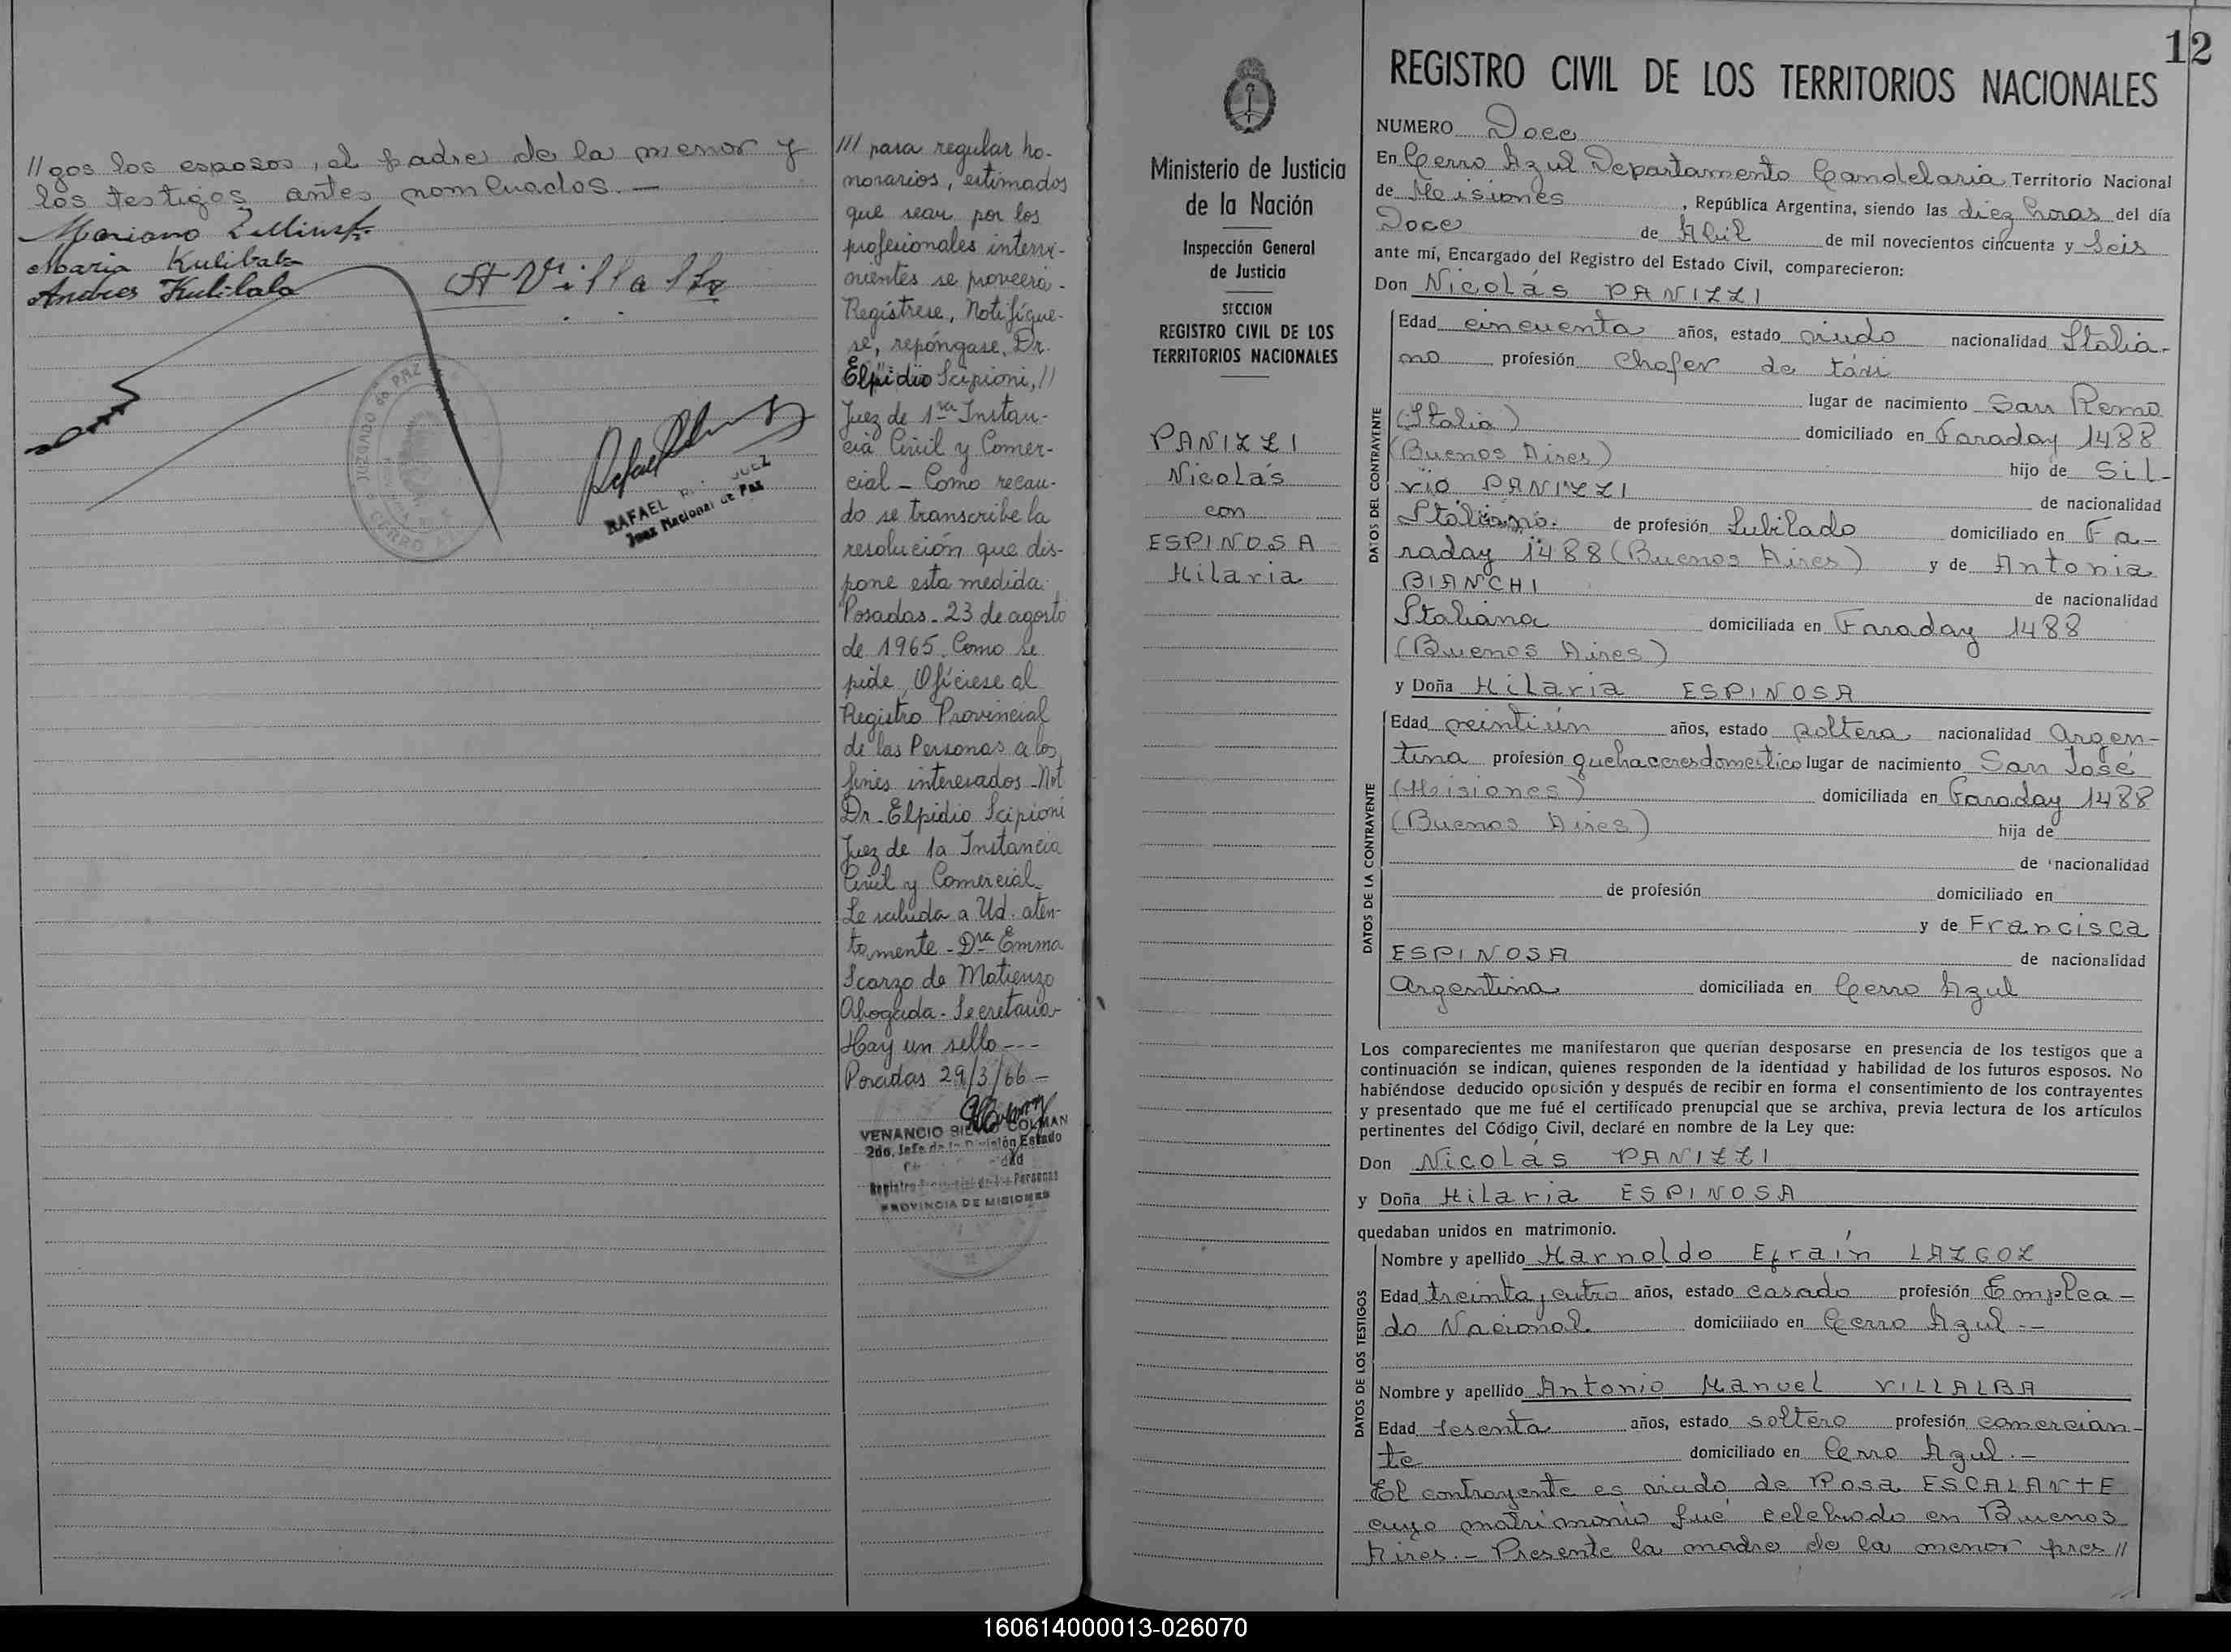 //gos los esposos, el padre de la menor y
los testigos antes nombrados.—
Mariano
Maria Kulibaba
Andres Kulibaba
A Villalba
JUZGADO de PAZ
CERRO AZUL
RAFAEL
JUEZ
Juez Nacional de Paz
/// para regular ho-
norarios, estimados
que sean por los
profesionales intervi-
nientes se proveerá-
Regístrese, Notifíque-
se, repóngase. Dr.
Elpidio Scipioni, //
Juez de 1ra Instan-
cia Civil y Comer-
cial – Como recau-
do se transcribe la
resolución que dis-
pone esta medida:
Posadas- 23 de agosto
de 1965. Como se
pide, Ofíciese al
Registro Provincial
de las Personas a los
fines interesados – Not
Dr- Elpidio Scipioni
Juez de 1a Instancia
Civil y Comercial-
Le saluda a Ud. aten-
tamente – Dra Emma
Scarzo de Matienzo
Abogada – Secretaria-
Hay un sello ---
Posadas 29/3/66 –
VENANCIO COLMAN
2do. Jefe de la División Estado
Registro Provincial de las Personas
PROVINCIA DE MISIONES
Ministerio de Justicia
de la Nación
Inspección General
de Justicia
SECCION
REGISTRO CIVIL DE LOS
TERRITORIOS NACIONALES
PANIZZI
Nicolás
con
ESPINOSA
Hilaria
12
REGISTRO CIVIL DE LOS TERRITORIOS NACIONALES
NUMERO Doce
En Cerro Azul Departamento Candelaria Territorio Nacional
de Misiones , República Argentina, siendo las diez horas del día
Doce de Abril de mil novecientos cincuenta y Seis
ante mí, Encargado del Registro del Estado Civil, comparecieron:
Don Nicolás PANIZZI
DATOS DEL CONTRAYENTE
Edad cincuenta años, estado viudo nacionalidad Italia-
no profesión Chofer de táxi
lugar de nacimiento San Remo
(Italia) domiciliado en Faraday 1488
(Buenos Aires) hijo de Sil-
vio PANIZZI de nacionalidad
Italiano. de profesión Jubilado domiciliado en Fa-
raday 1488 (Buenos Aires) y de Antonia
BIANCHI de nacionalidad
Italiana domiciliada en Faraday 1488
(Buenos Aires)
y Doña Hilaria ESPINOSA
DATOS DE LA CONTRAYENTE
Edad veintiún años, estado soltera nacionalidad Argen-
tina profesión quehaceres domestico lugar de nacimiento San José
(Misiones) domiciliada en Faraday 1488
(Buenos Aires) hija de
de nacionalidad
de profesión domiciliado en
y de Francisca
ESPINOSA de nacionalidad
Argentina domiciliada en Cerro Azul
Los comparecientes me manifestaron que querían desposarse en presencia de los testigos que a
continuación se indican, quienes responden de la identidad y habilidad de los futuros esposos. No
habiéndose deducido oposición y después de recibir en forma el consentimiento de los contrayentes
y presentado que me fué el certificado prenupcial que se archiva, previa lectura de los artículos
pertinentes del Código Civil, declaré en nombre de la Ley que:
Don Nicolás PANIZZI
y Doña Hilaria ESPINOSA
quedaban unidos en matrimonio.
DATOS DE LOS TESTIGOS
Nombre y apellido Harnoldo Efraín LAZCOZ
Edad treinta y cutro años, estado casado profesión Emplea-
do Nacional domiciliado en Cerro Azul.—
Nombre y apellido Antonio Manuel VILLALBA
Edad sesenta años, estado soltero profesión comercian-
te domiciliado en Cerro Azul.—
El contrayente es viudo de Rosa ESCALANTE
cuyo matrimonio fué celebrado en Buenos
Aires.— Presente la madre de la menor pres//
160614000013-026070